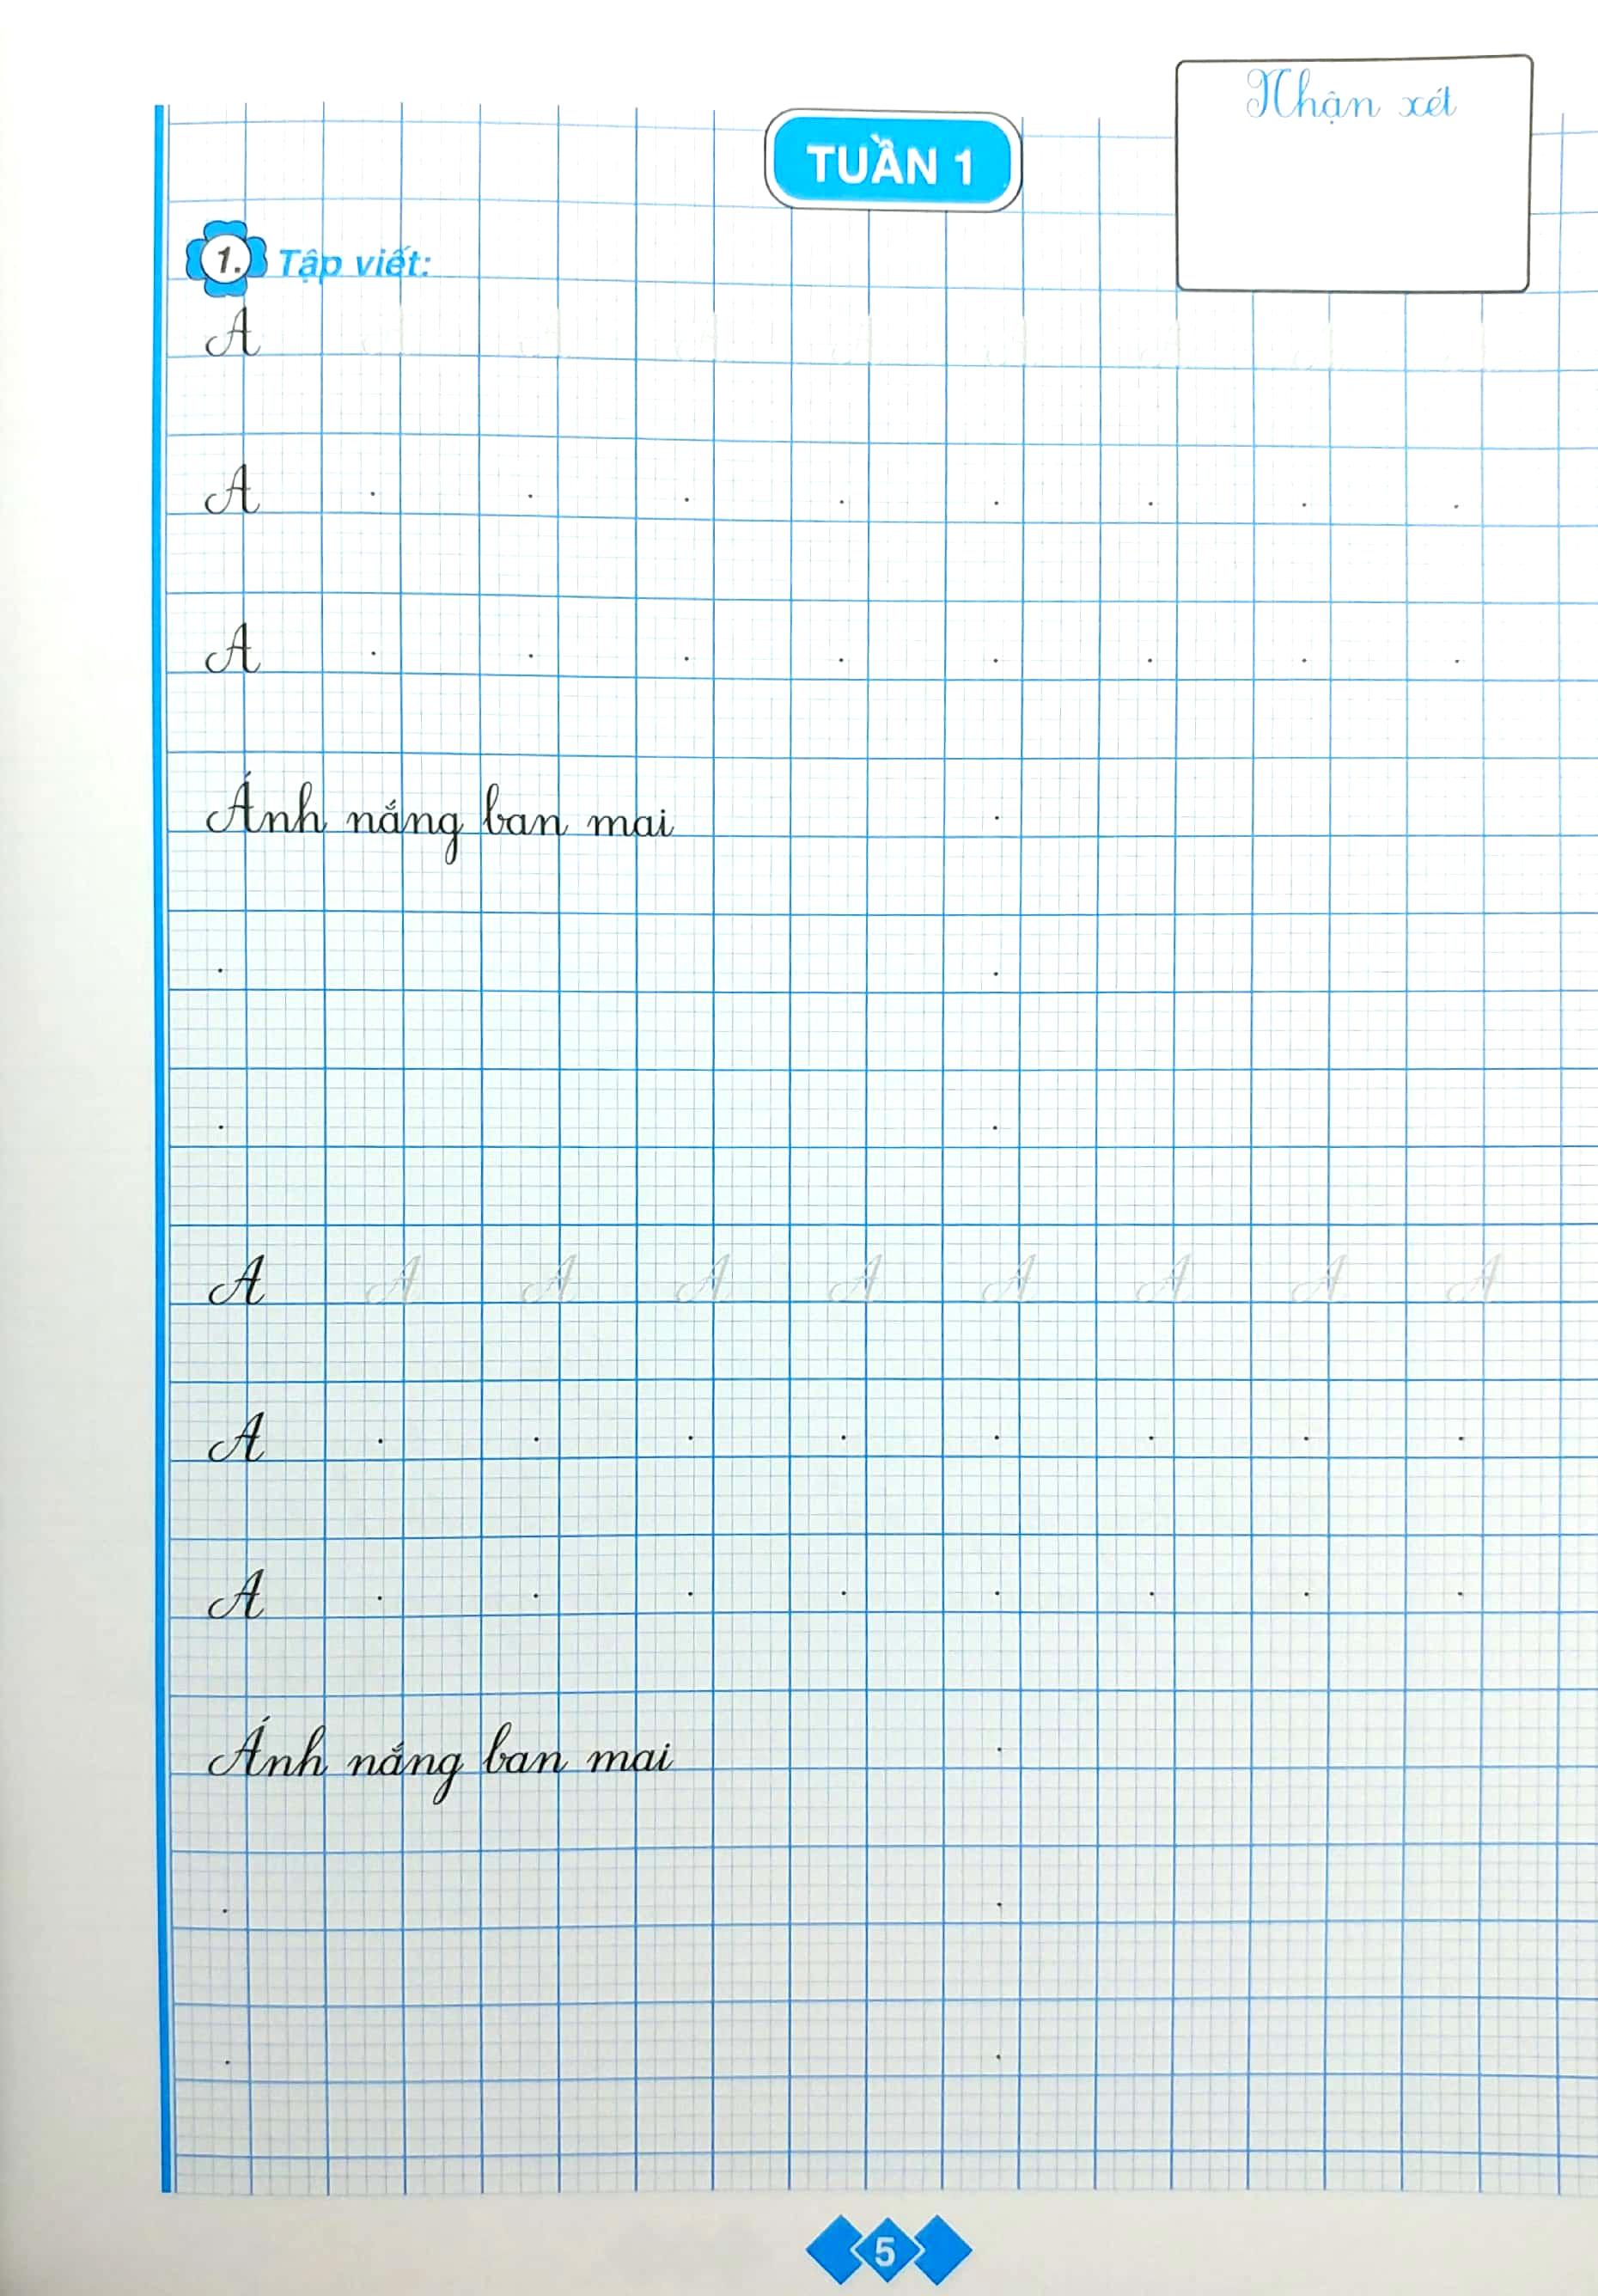 Nhận xét
TUẦN 1
1. Tập viết:
A A A A A A A A A
A
A
Ánh nắng ban mai
A A A A A A A A A
A
A
Ánh nắng ban mai
5